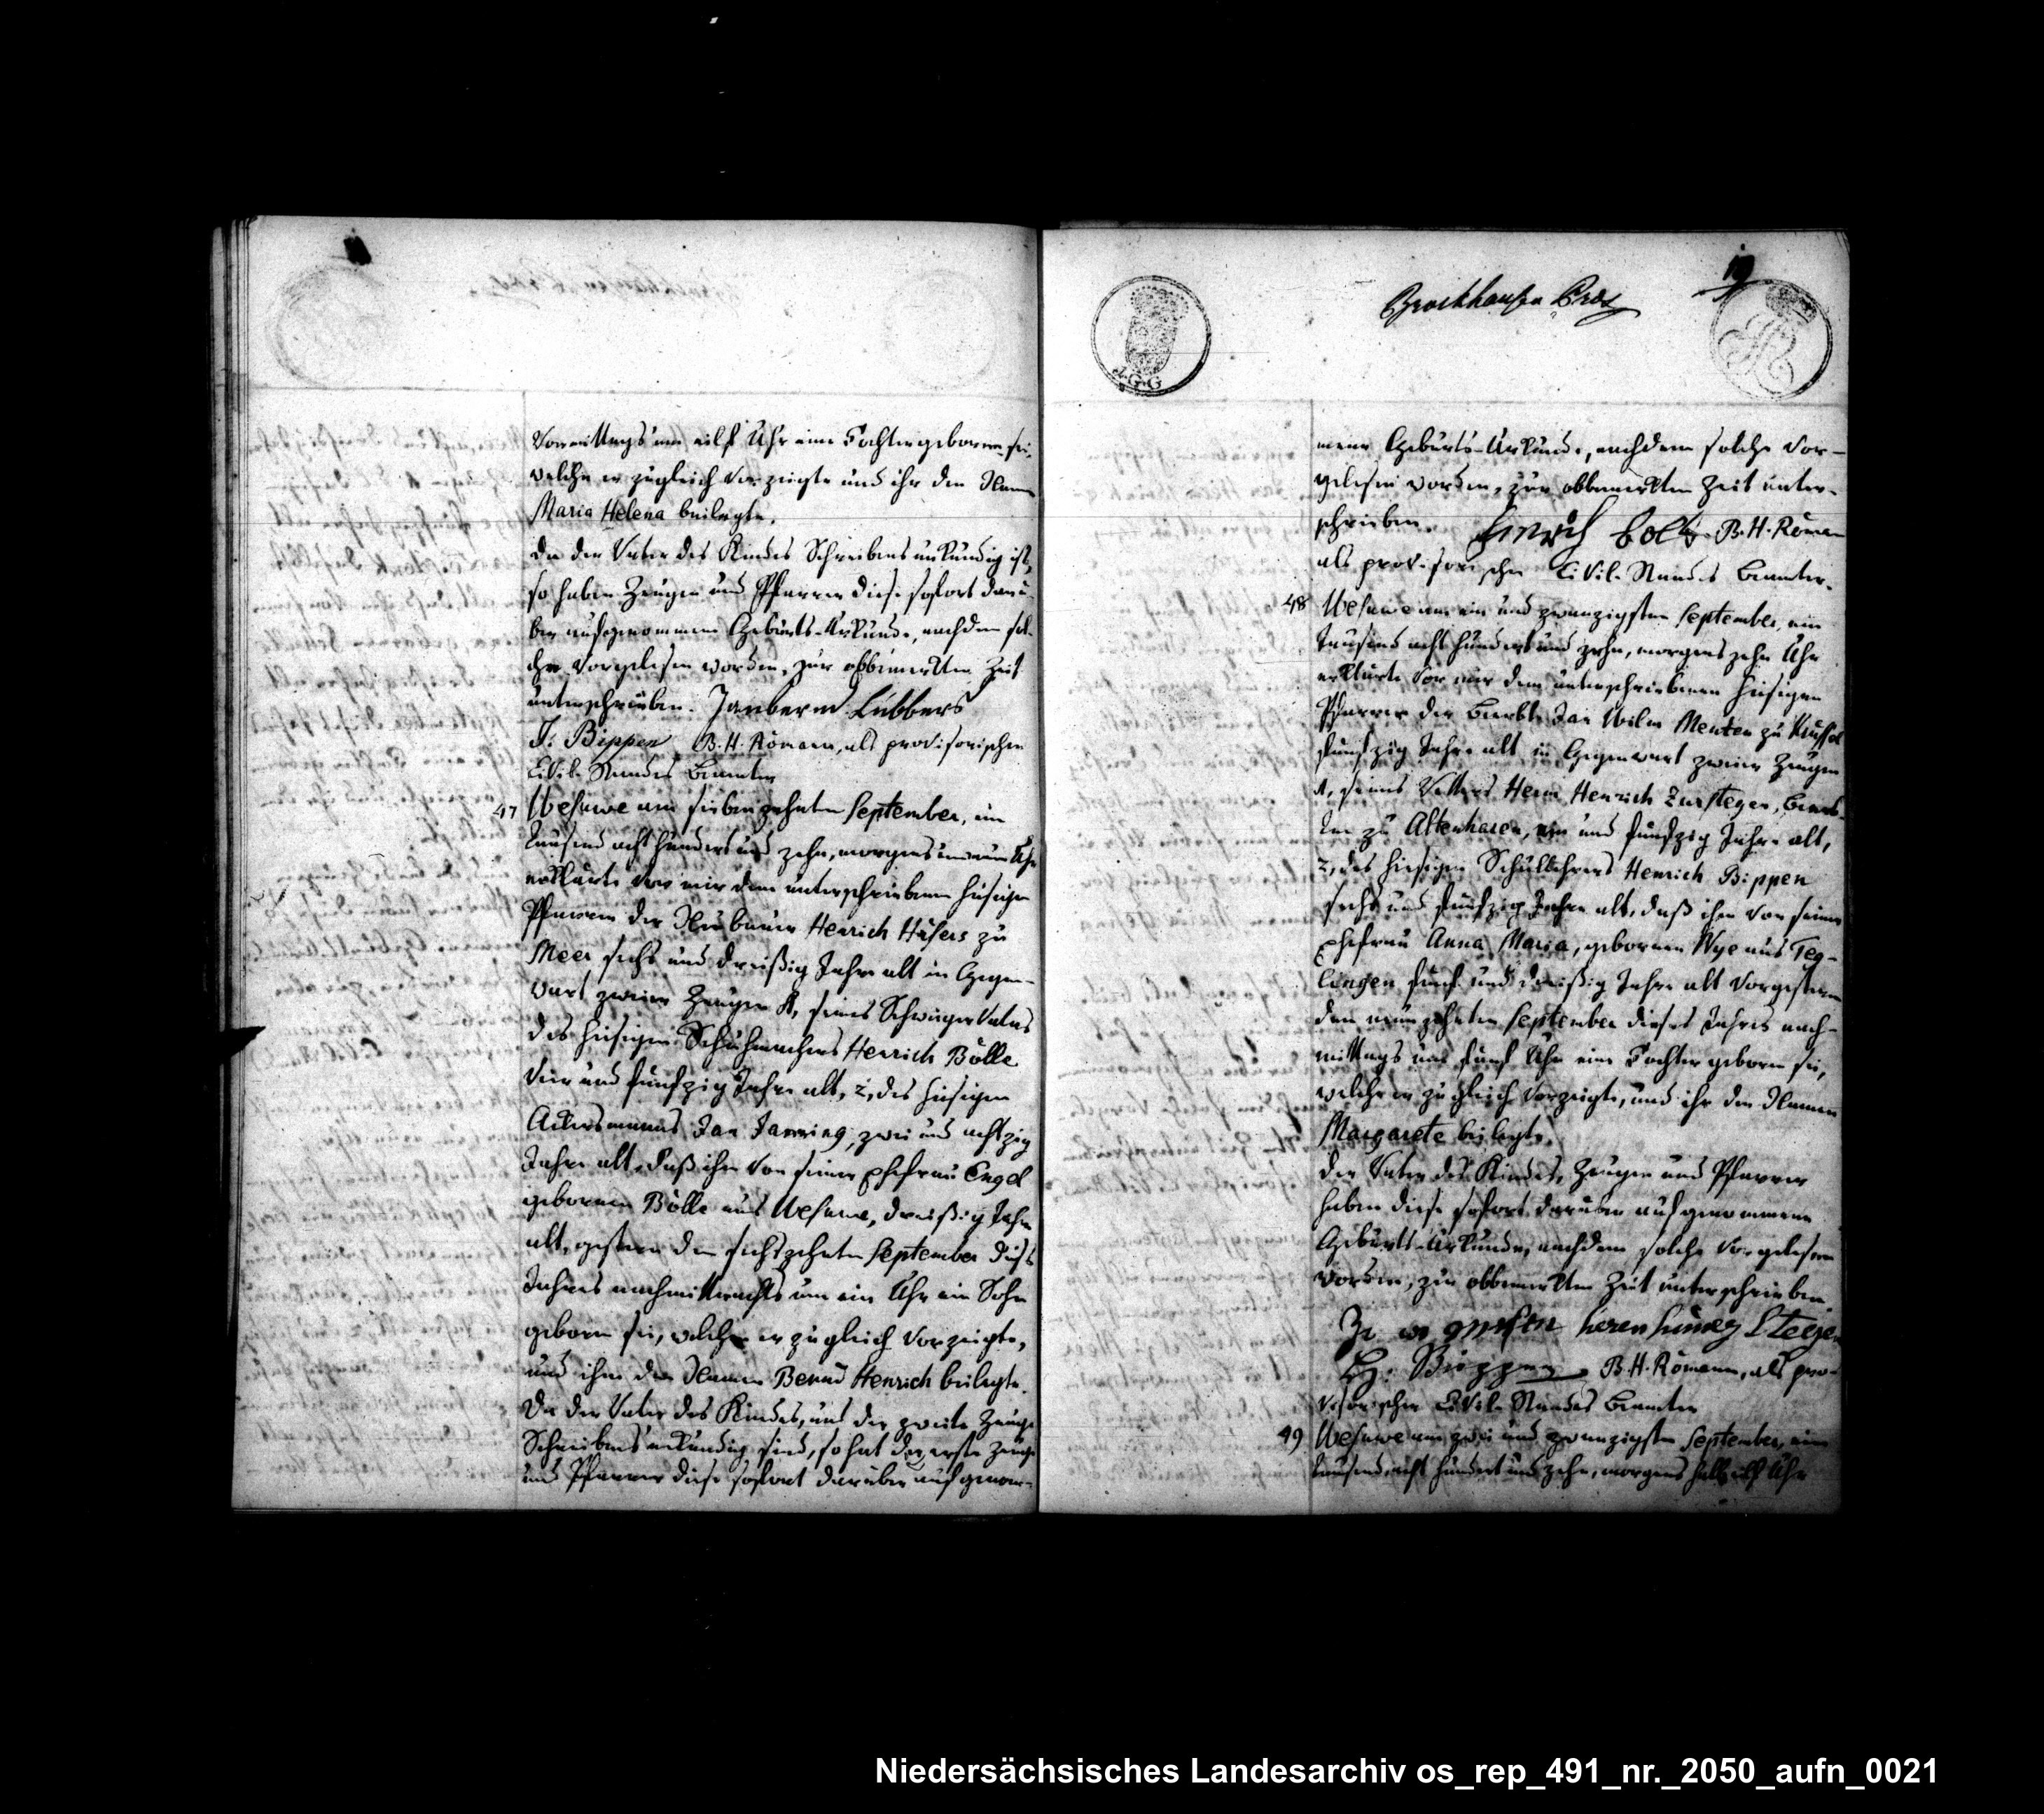 Vormittags um eilf Uhr eine Tochter geboren sei,
welche er zugleich vorzeigte und ihr den Namen
Maria Helena beilegte.
Da der Vater des Kindes Schreibens unkundig ist,
so haben Zeugen und Pfarrer diese sofort darü-
ber aufgenommene Geburts-Urkunde, nachdem sol-
che vorgelesen worden, zur obbemerkten Zeit
unterschrieben. Janbernd Lübbers
J. Bippen B. H. Römann, als provisorischer
Civil-Standes Beamter
47 Wesuwe am siebenzehnten September, ein
tausend acht hundert und zehn, morgens um neun Uhr
erklärte vor mir dem unterschriebenen hiesigen
Pfarrer der Neubauer Henrich Häfers zu
Meer sechs und dreißig Jahre alt in Gegen-
wart zweier Zeugen 1, seines Schwiegervaters
des hiesigen Schuhmachers Henrich Bölle
vier und funfzig Jahre alt, 2, des hiesigen
Ackersmanns Jan Janning, zwei und achtzig
Jahre alt, daß ihm von seiner Ehefrau Engel
gebornen Bölle aus Wesuwe, dreißig Jahre
alt, gestern den sechszehnten September dieses
Jahres nachmitternachts um ein Uhr ein Sohn
geboren sei, welchen er zugleich vorzeigte,
und ihm den Namen Bernd Henrich beilegte.
Da der Vater des Kindes, und der zweite Zeuge
Schreibens unkundig sind, so hat der erste Zeuge
und Pfarrer diese sofort darüber aufgenom-
19
Brockhausen
J.G.G
mene Geburts-Urkunde, nachdem solche vor-
gelesen worden, zur obbemerkten Zeit unter-
schrieben. B. H. Römann
als provisorischer Civil-Standes Beamter.
48 Wesuwe am ein und zwanzigsten September, ein
tausend acht hundert und zehn, morgens zehn Uhr
erklärte vor mir dem unterschriebenen hiesigen
Pfarrer der Beerbte Jan Wilm Menten zu
funfzig Jahre alt in Gegenwart zweier Zeugen
1, seines Vetters Herm Henrich Zursteger, Beerb-
ten zu Altenharen, ein und funfzig Jahre alt,
2, des hiesigen Schullehrers Henrich Bippen
sechs und funfzig Jahre alt, daß ihm von seiner
Ehefrau Anna Maria, gebornen Wye aus Teg-
lingen fünf und dreißig Jahre alt vorgestern
den neunzehnten September dieses Jahres nach-
mittags um fünf Uhr eine Tochter geboren sei,
welche er zugleich vorzeigte, und ihr den Namen
Margarete beilegte.
Der Vater des Kindes, Zeugen und Pfarrer
haben diese sofort darüber aufgenommene
Geburts-Urkunde, nachdem solche vorgelesen
worden, zur obbemerkten Zeit unterschrieben
B. H. Römann, als pro-
visorischer Civil-Standes Beamter
49 Wesuwe am zwei und zwanzigsten September, ein
tausend acht hundert und zehn, morgens halb elf Uhr
Niedersächsisches Landesarchiv os_rep_491_nr._2050_aufn_0021